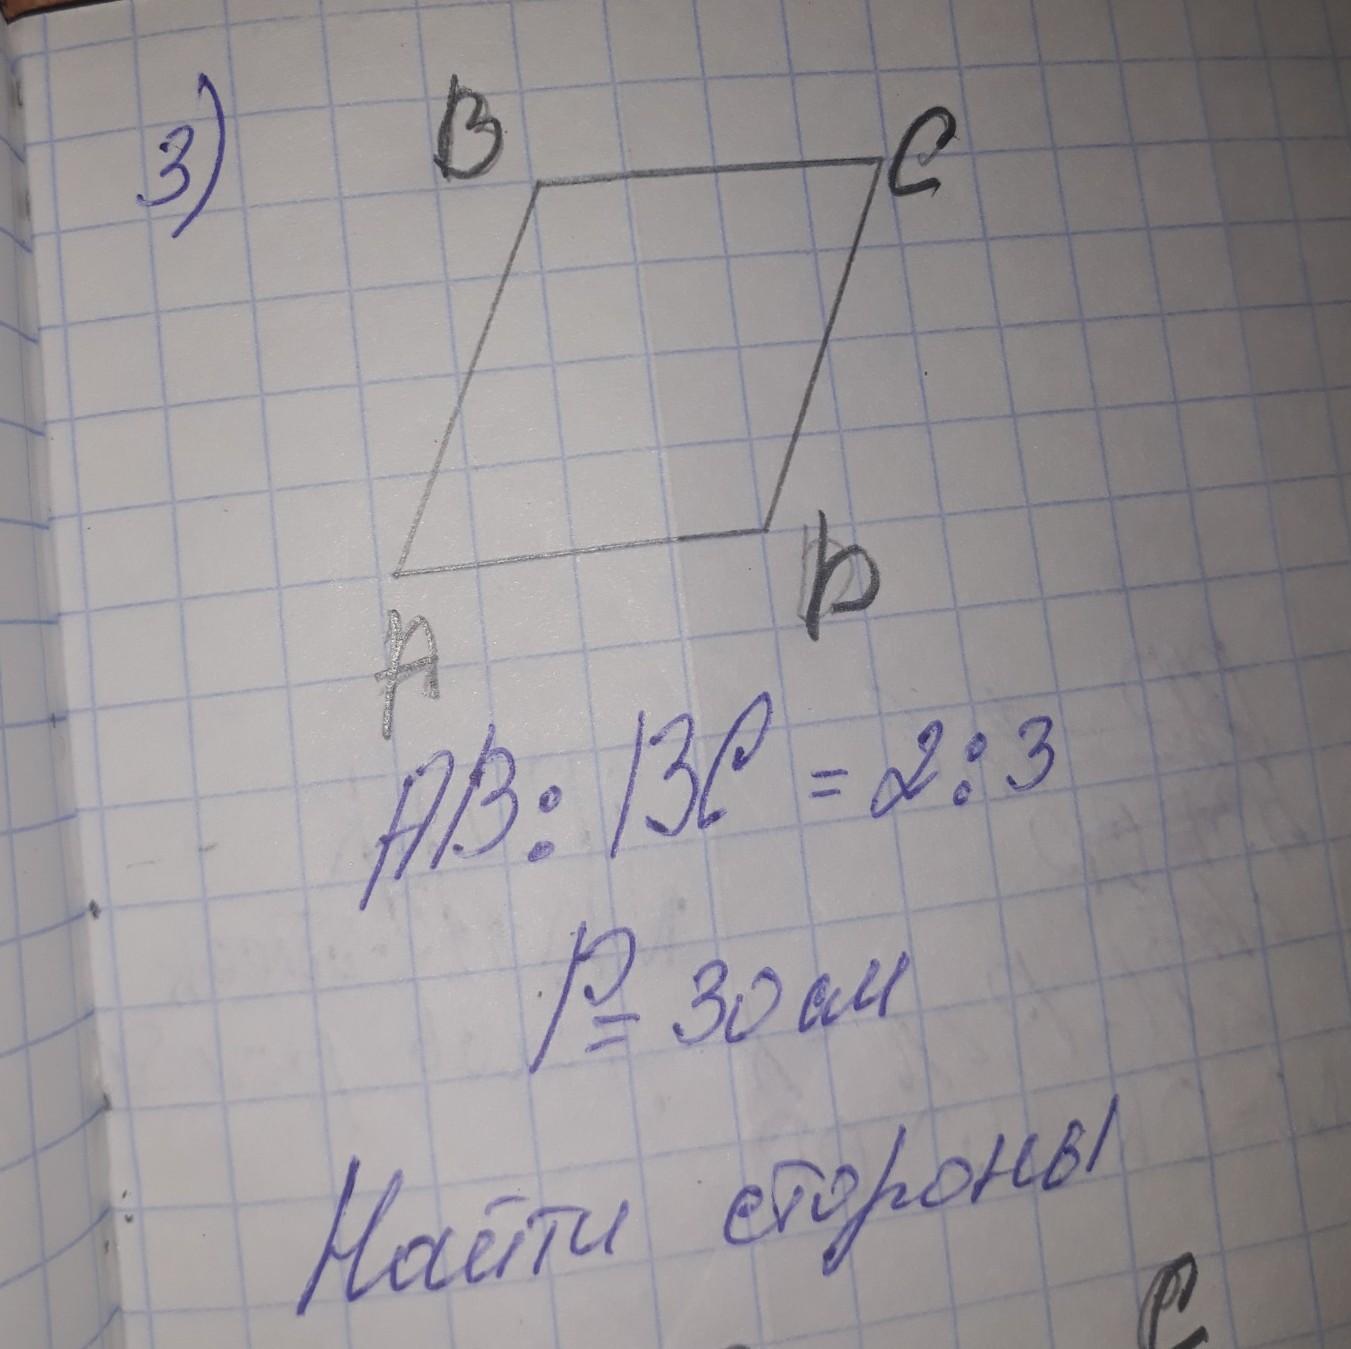 3)
B C
A D
AB : BC = 2 : 3
P = 30 см
Найти стороны
C